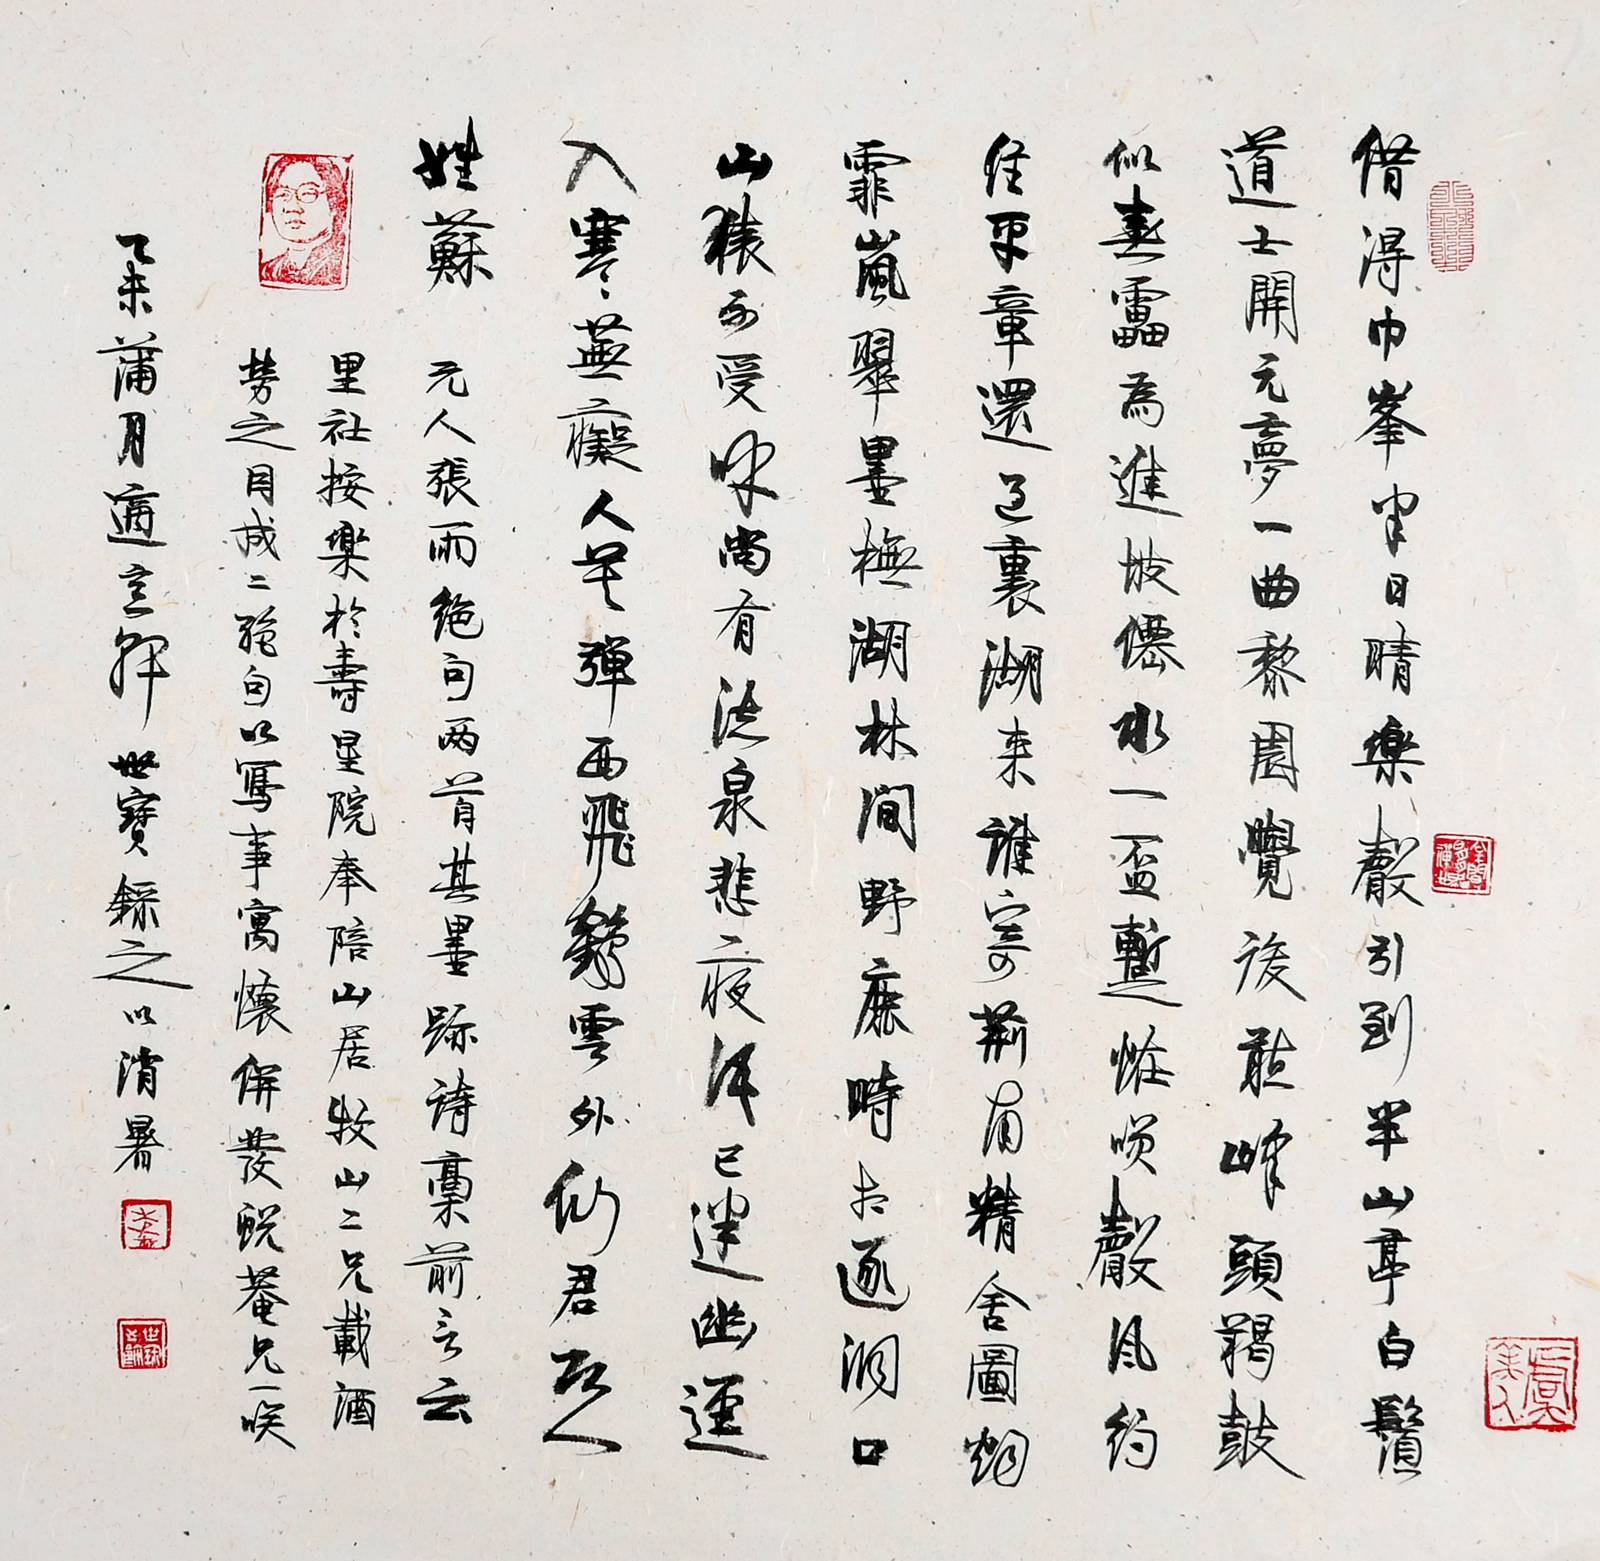 借得巾峯半日晴樂聲引到半山亭白鬚
道士開元夢一曲黎園覺後聽峰頭羯鼓
似春雷為進坡僊水一盃蹔恠唤聲風約
住平章還過裏湖来誰寄荊南精舍圖烟
霏嵐翠墨橅湖林間野鹿時相逐洞口
山猿不受呼尚有法泉悲夜澤已迷幽逕
入寒蕪癡人莫彈西飛鶴雲外仙君恐
姓蘇
元人張雨絕句两首其墨跡詩稾前言云
里社按樂於壽星院奉陪山居牧山二兄載酒
勞之目成二絕句以寫事寓懷併發蛻菴兄一咲
乙未蒲月適言軒世寶録之以消暑